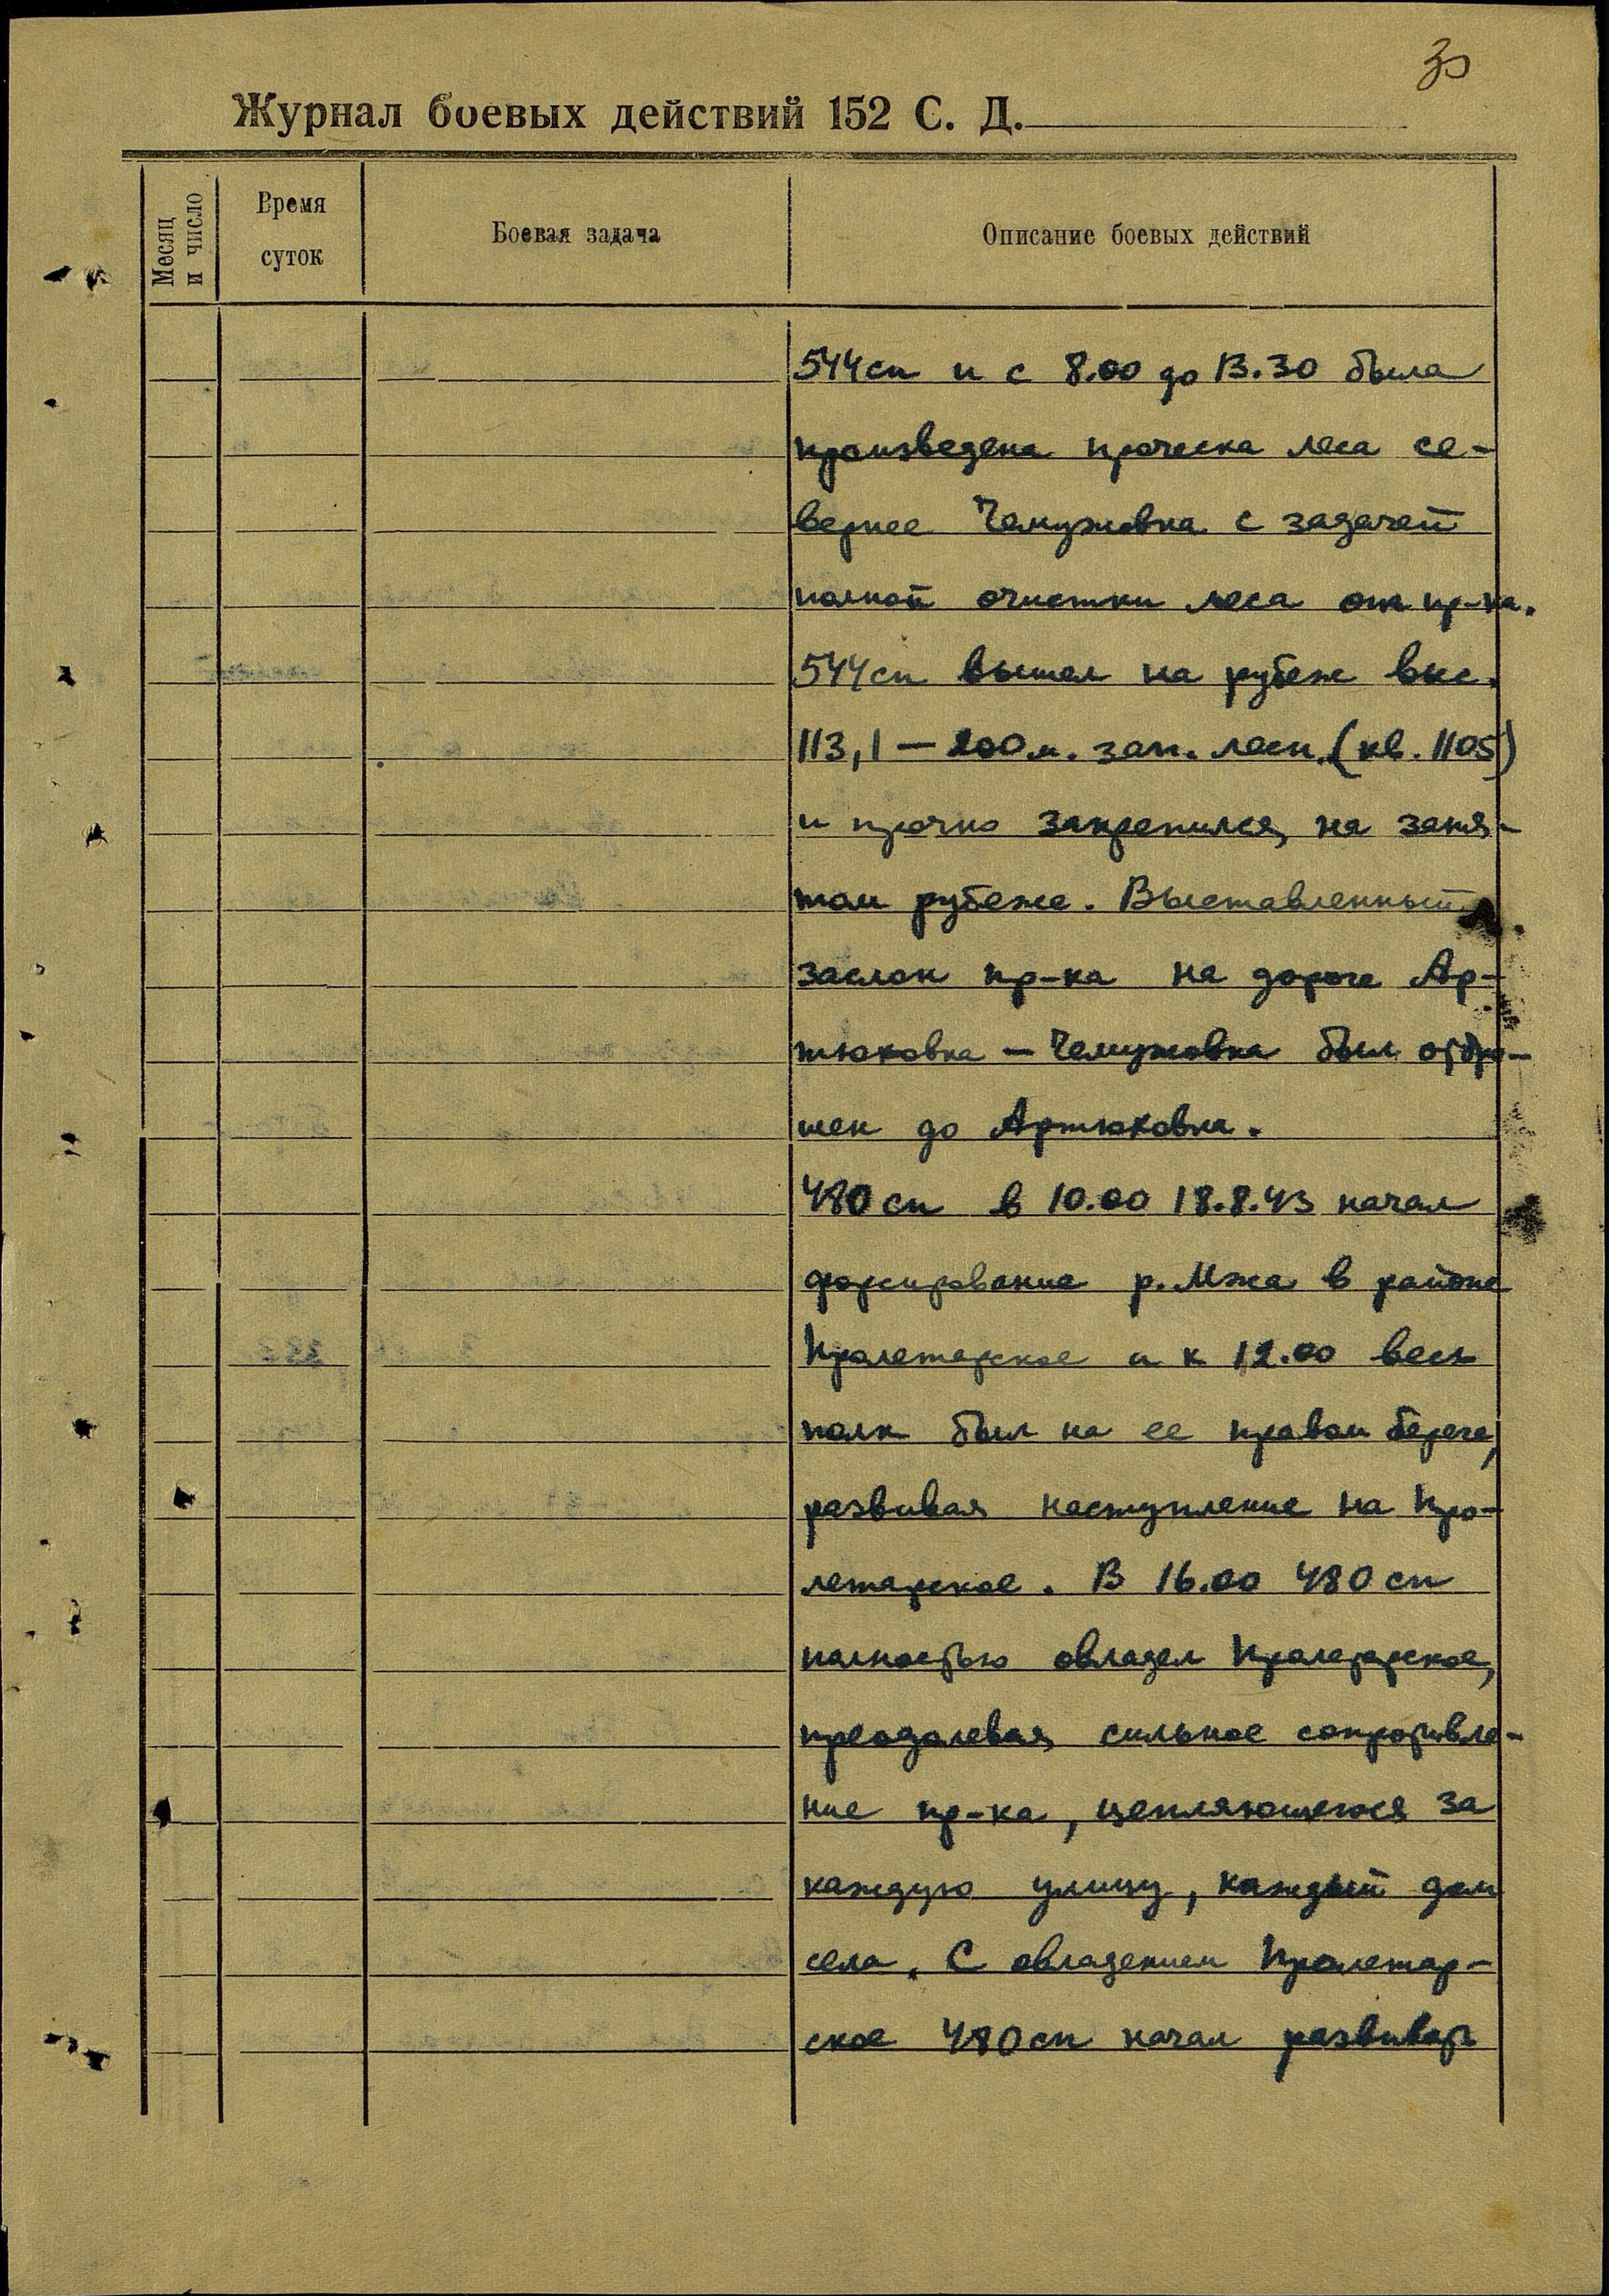 30
Журнал боевых действий 152 С. Д.
Месяц и число
Время суток
Боевая задача
Описание боевых действий
544сп и с 8.00 до 13.30 была
произведена проческа леса се-
вернее Чемужовка с задачей
полной очистки леса от пр-ка.
544сп вышел на рубеж выс.
113,1 — 200м. зап. лесн. (кв. 1105)
и прочно закрепился, на заня-
том рубеже. Выставленный
заслон пр-ка на дороге Ар-
тюховка — Чемужовка был отбро-
шен до Артюховка.
480 сп в 10.00 18.8.43 начал
форсирование р. Мжа в районе
Пролетарское и к 12.00 весь
полк был на ее правом берегу,
развивая наступление на Про-
летарское. В 16.00 480 сп
полностью овладел Пролетарское,
преодолевая, сильное сопротивле-
ние пр-ка, цепляющегося за
каждую улицу, каждый дом
села. С овладением Пролетар-
ское 480сп начал развивать